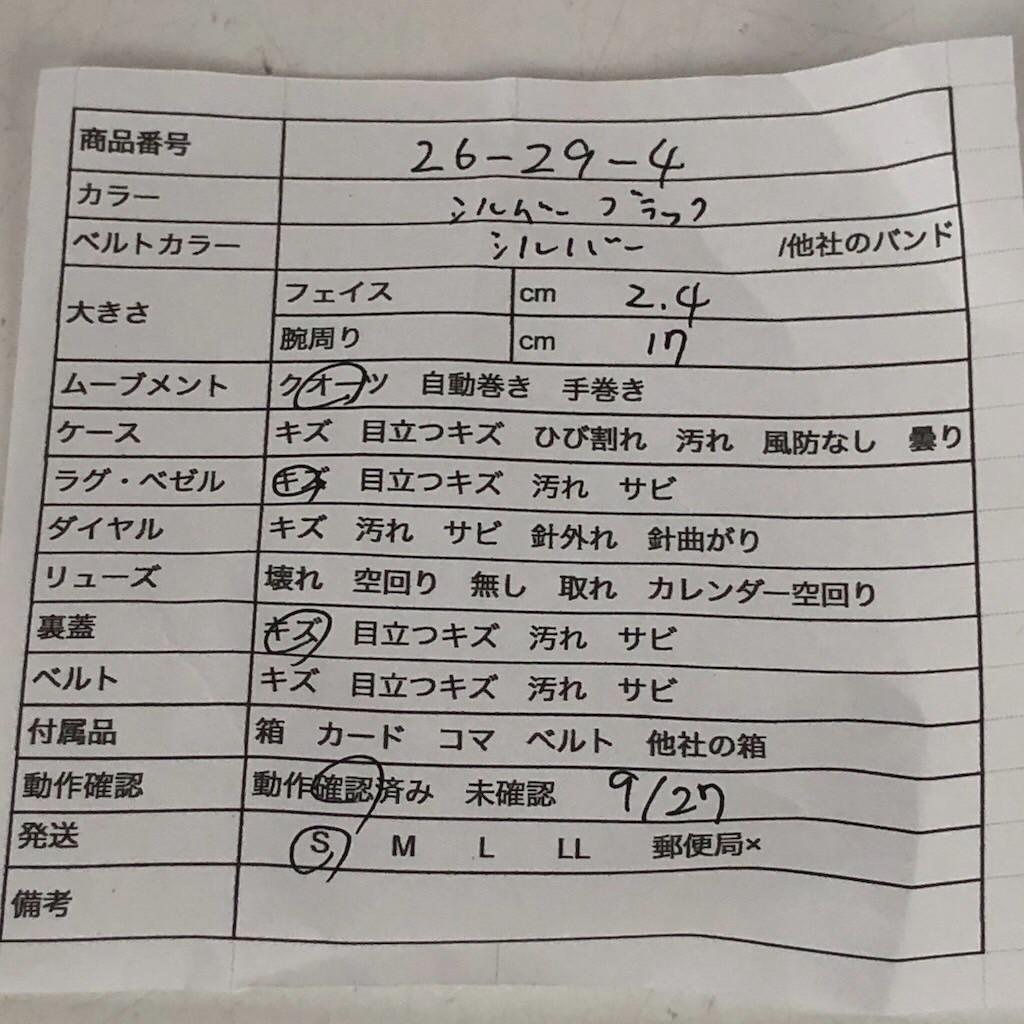 商品番号 26-29-4
カラー シルバー ブラック
ベルトカラー シルバー /他社のバンド
大きさ フェイス cm 2.4
腕周り cm 17
ムーブメント クオーツ 自動巻き 手巻き
ケース キズ 目立つキズ ひび割れ 汚れ 風防なし 曇り
ラグ・ベゼル キズ 目立つキズ 汚れ サビ
ダイヤル キズ 汚れ サビ 針外れ 針曲がり
リューズ 壊れ 空回り 無し 取れ カレンダー空回り
裏蓋 キズ 目立つキズ 汚れ サビ
ベルト キズ 目立つキズ 汚れ サビ
付属品 箱 カード コマ ベルト 他社の箱
動作確認 動作確認済み 未確認 9/27
発送 S M L LL 郵便局×
備考